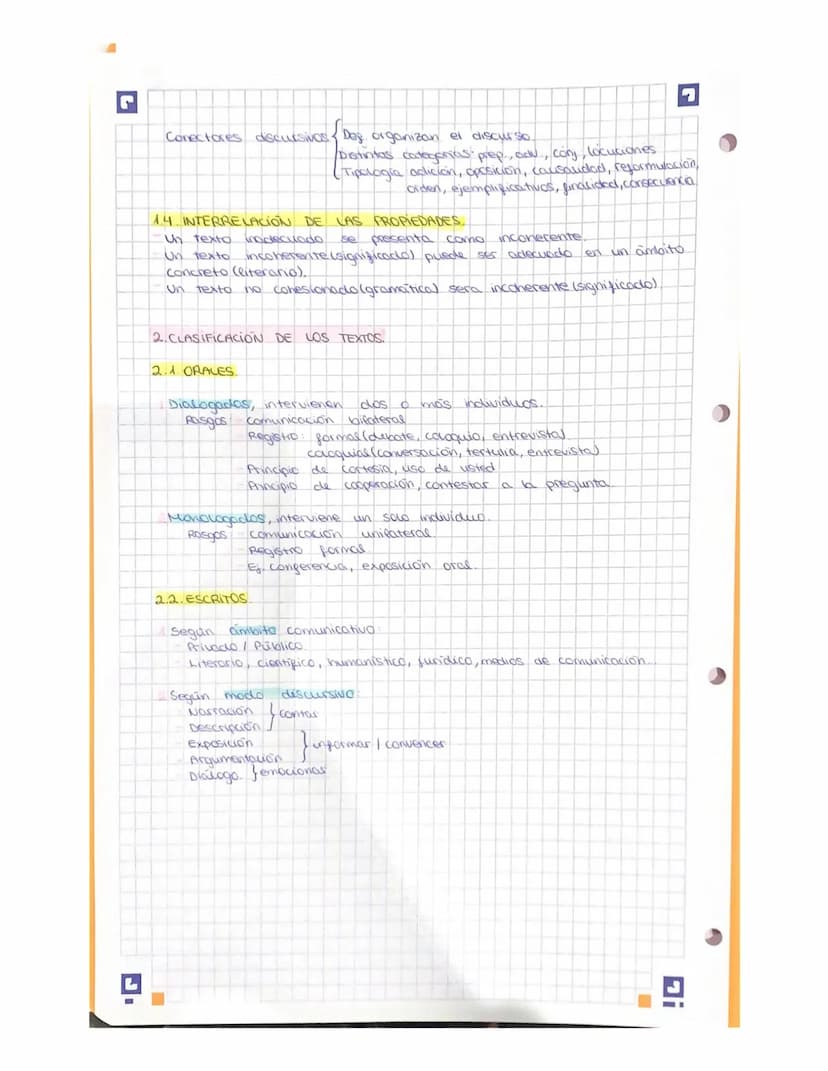 Conectores discursivos { Def. organizan el discurso.
Distintas categorías: prep., adv., conj., locuciones
Tipología adición, oposición, causalidad, reformulación,
orden, ejemplificativos, finalidad, consecuencia
1.4. INTERRELACIÓN DE LAS PROPIEDADES.
- Un texto inadecuado se presenta como incoherente.
- Un texto incoherente (significado) puede ser adecuado en un ámbito
concreto (literario).
- Un texto no cohesionado (gramática) sera incoherente (significado).
2. CLASIFICACIÓN DE LOS TEXTOS.
2.1 ORALES
Dialogados, intervienen dos o más individuos.
Rasgos - comunicación bilateral
- Registro: formal (debate, coloquio, entrevista)
coloquial (conversación, tertulia, entrevista)
- Principio de cortesía, uso de usted
- Principio de cooperación, contestar a la pregunta
Monologados, interviene un solo individuo.
Rasgos - comunicación unilateral
- Registro formal
- Ej. conferencia, exposición oral.
2.2. ESCRITOS
Según ámbito comunicativo:
- Privado / Público
- Literario, científico, humanístico, jurídico, medios de comunicación.
Según modo discursivo:
- Narración } contar
- Descripción
- Exposición } informar / convencer
- Argumentación
- Diálogo. } emocionar